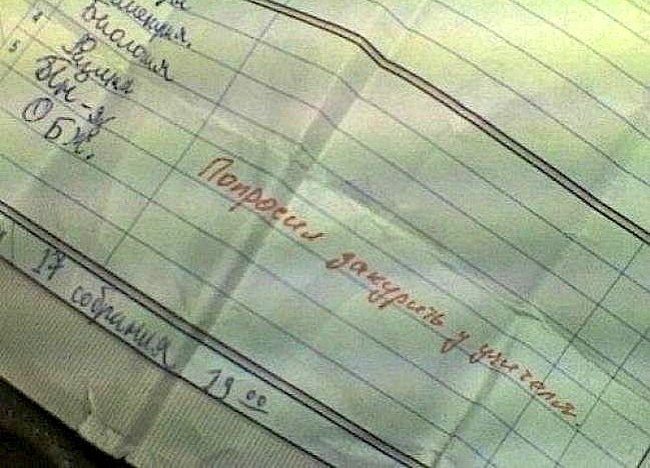 Биология
Физика
ОБЖ.
Попросил закурить у учителя.
17 собрания 19 00